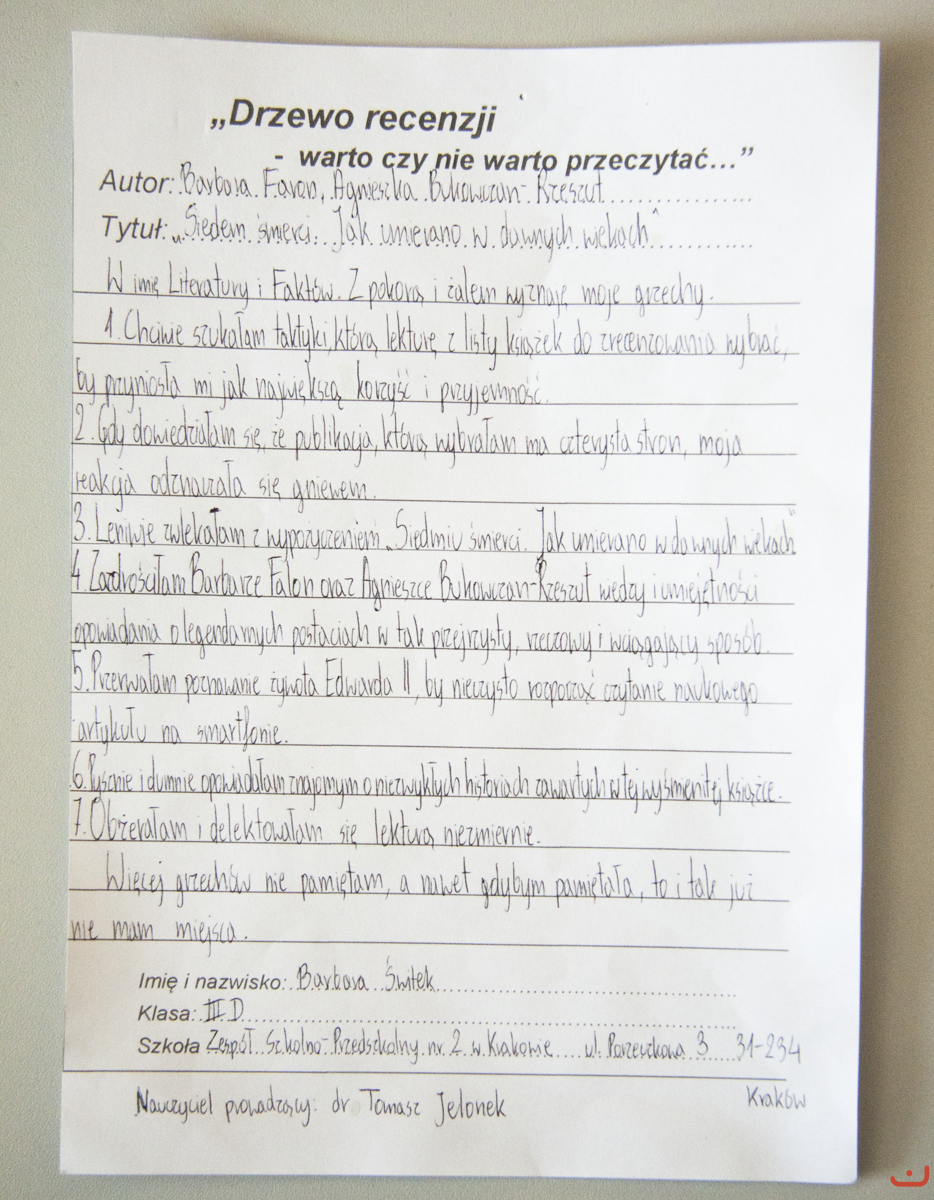 „Drzewo recenzji
- warto czy nie warto przeczytać...”
Autor: Barbara Faron, Agnieszka Bukowczan-Rzeszut
Tytuł: „Siedem śmierci. Jak umierano w dawnych wiekach”
W imię Literatury i Faktów. Z pokorą i żalem wyznaję moje grzechy.
1. Chciwie szukałam taktyki, którą lekturę z listy książek do zrecenzowania wybrać,
by przyniosła mi jak największą korzyść i przyjemność.
2. Gdy dowiedziałam się, że publikacja, którą wybrałam ma czterysta stron, moja
reakcja odznaczała się gniewem.
3. Leniwie zwlekałam z wypożyczeniem „Siedmiu śmierci. Jak umierano w dawnych wiekach”
4. Zazdrościłam Barbarze Falon oraz Agnieszce Bukowczan-Rzeszut wiedzy i umiejętności
opowiadania o legendarnych postaciach w tak przejrzysty, rzeczowy i wciągający sposób.
5. Przerwałam poznawanie żywota Edwarda II, by nieczysto rozpocząć czytanie naukowego
artykułu na smartfonie.
6. Pysznie i dumnie opowiadałam znajomym o niezwykłych historiach zawartych w tej wyśmienitej książce.
7. Obżerałam i delektowałam się lekturą niezmiernie.
Więcej grzechów nie pamiętam, a nawet gdybym pamiętała, to i tak już
nie mam miejsca.
Imię i nazwisko: Barbara Świtek
Klasa: III D
Szkoła Zespół Szkolno-Przedszkolny nr 2 w Krakowie ul. Porzeczkowa 3 31-234
Kraków
Nauczyciel prowadzący: dr Tomasz Jelonek